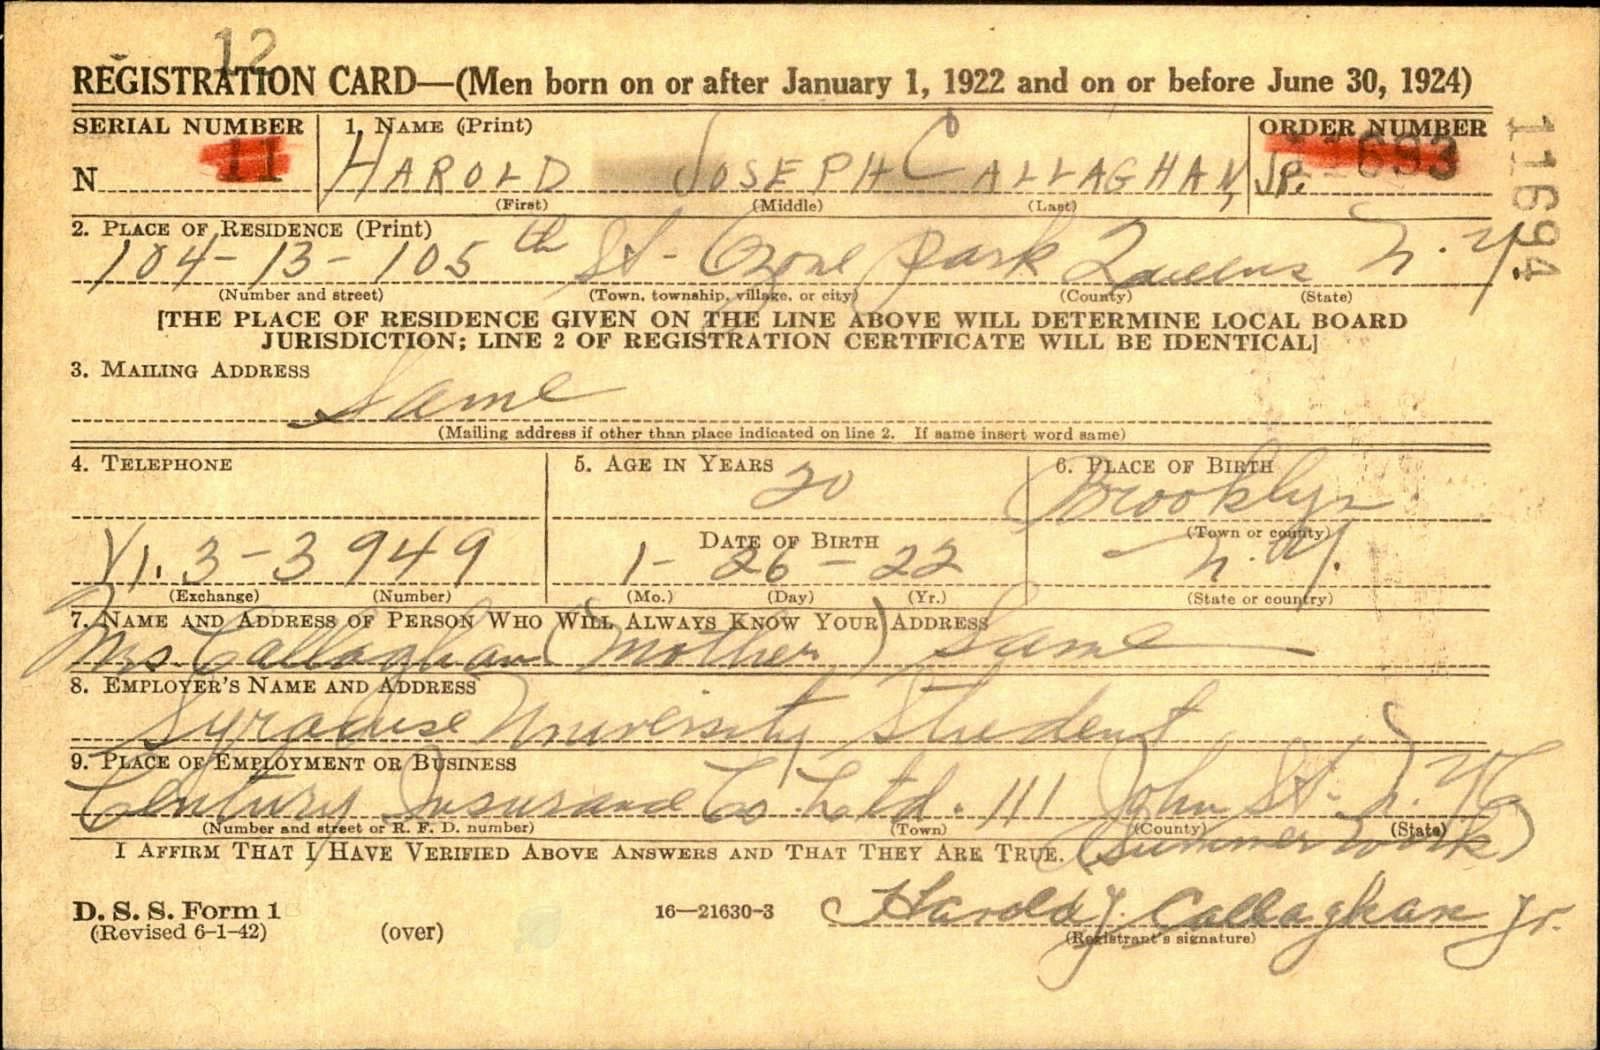 12
REGISTRATION CARD—(Men born on or after January 1, 1922 and on or before June 30, 1924)
SERIAL NUMBER
N 11
1. NAME (Print)
HAROLD JOSEPH CALLAGHAN, JR.
(First) (Middle) (Last)
ORDER NUMBER
11694
2. PLACE OF RESIDENCE (Print)
104-13-105th St- Ozone Park Queens N.Y.
(Number and street) (Town, township, village, or city) (County) (State)
[THE PLACE OF RESIDENCE GIVEN ON THE LINE ABOVE WILL DETERMINE LOCAL BOARD
JURISDICTION; LINE 2 OF REGISTRATION CERTIFICATE WILL BE IDENTICAL]
3. MAILING ADDRESS
Same
(Mailing address if other than place indicated on line 2. If same insert word same)
4. TELEPHONE
VI. 3-3949
(Exchange) (Number)
5. AGE IN YEARS
20
DATE OF BIRTH
1-26-22
(Mo.) (Day) (Yr.)
6. PLACE OF BIRTH
Brooklyn
(Town or county)
N.Y.
(State or country)
7. NAME AND ADDRESS OF PERSON WHO WILL ALWAYS KNOW YOUR ADDRESS
Mrs Callaghan (Mother) Same
8. EMPLOYER'S NAME AND ADDRESS
Syracuse University Student
9. PLACE OF EMPLOYMENT OR BUSINESS
Century Insurance Co. Ltd. 111 John St. N.YC
(Number and street or R. F. D. number) (Town) (County) (State)
(Summer work)
I AFFIRM THAT I HAVE VERIFIED ABOVE ANSWERS AND THAT THEY ARE TRUE.
D. S. S. Form 1
(Revised 6-1-42)
(over)
16—21630-3
Harold J. Callaghan Jr.
(Registrant's signature)